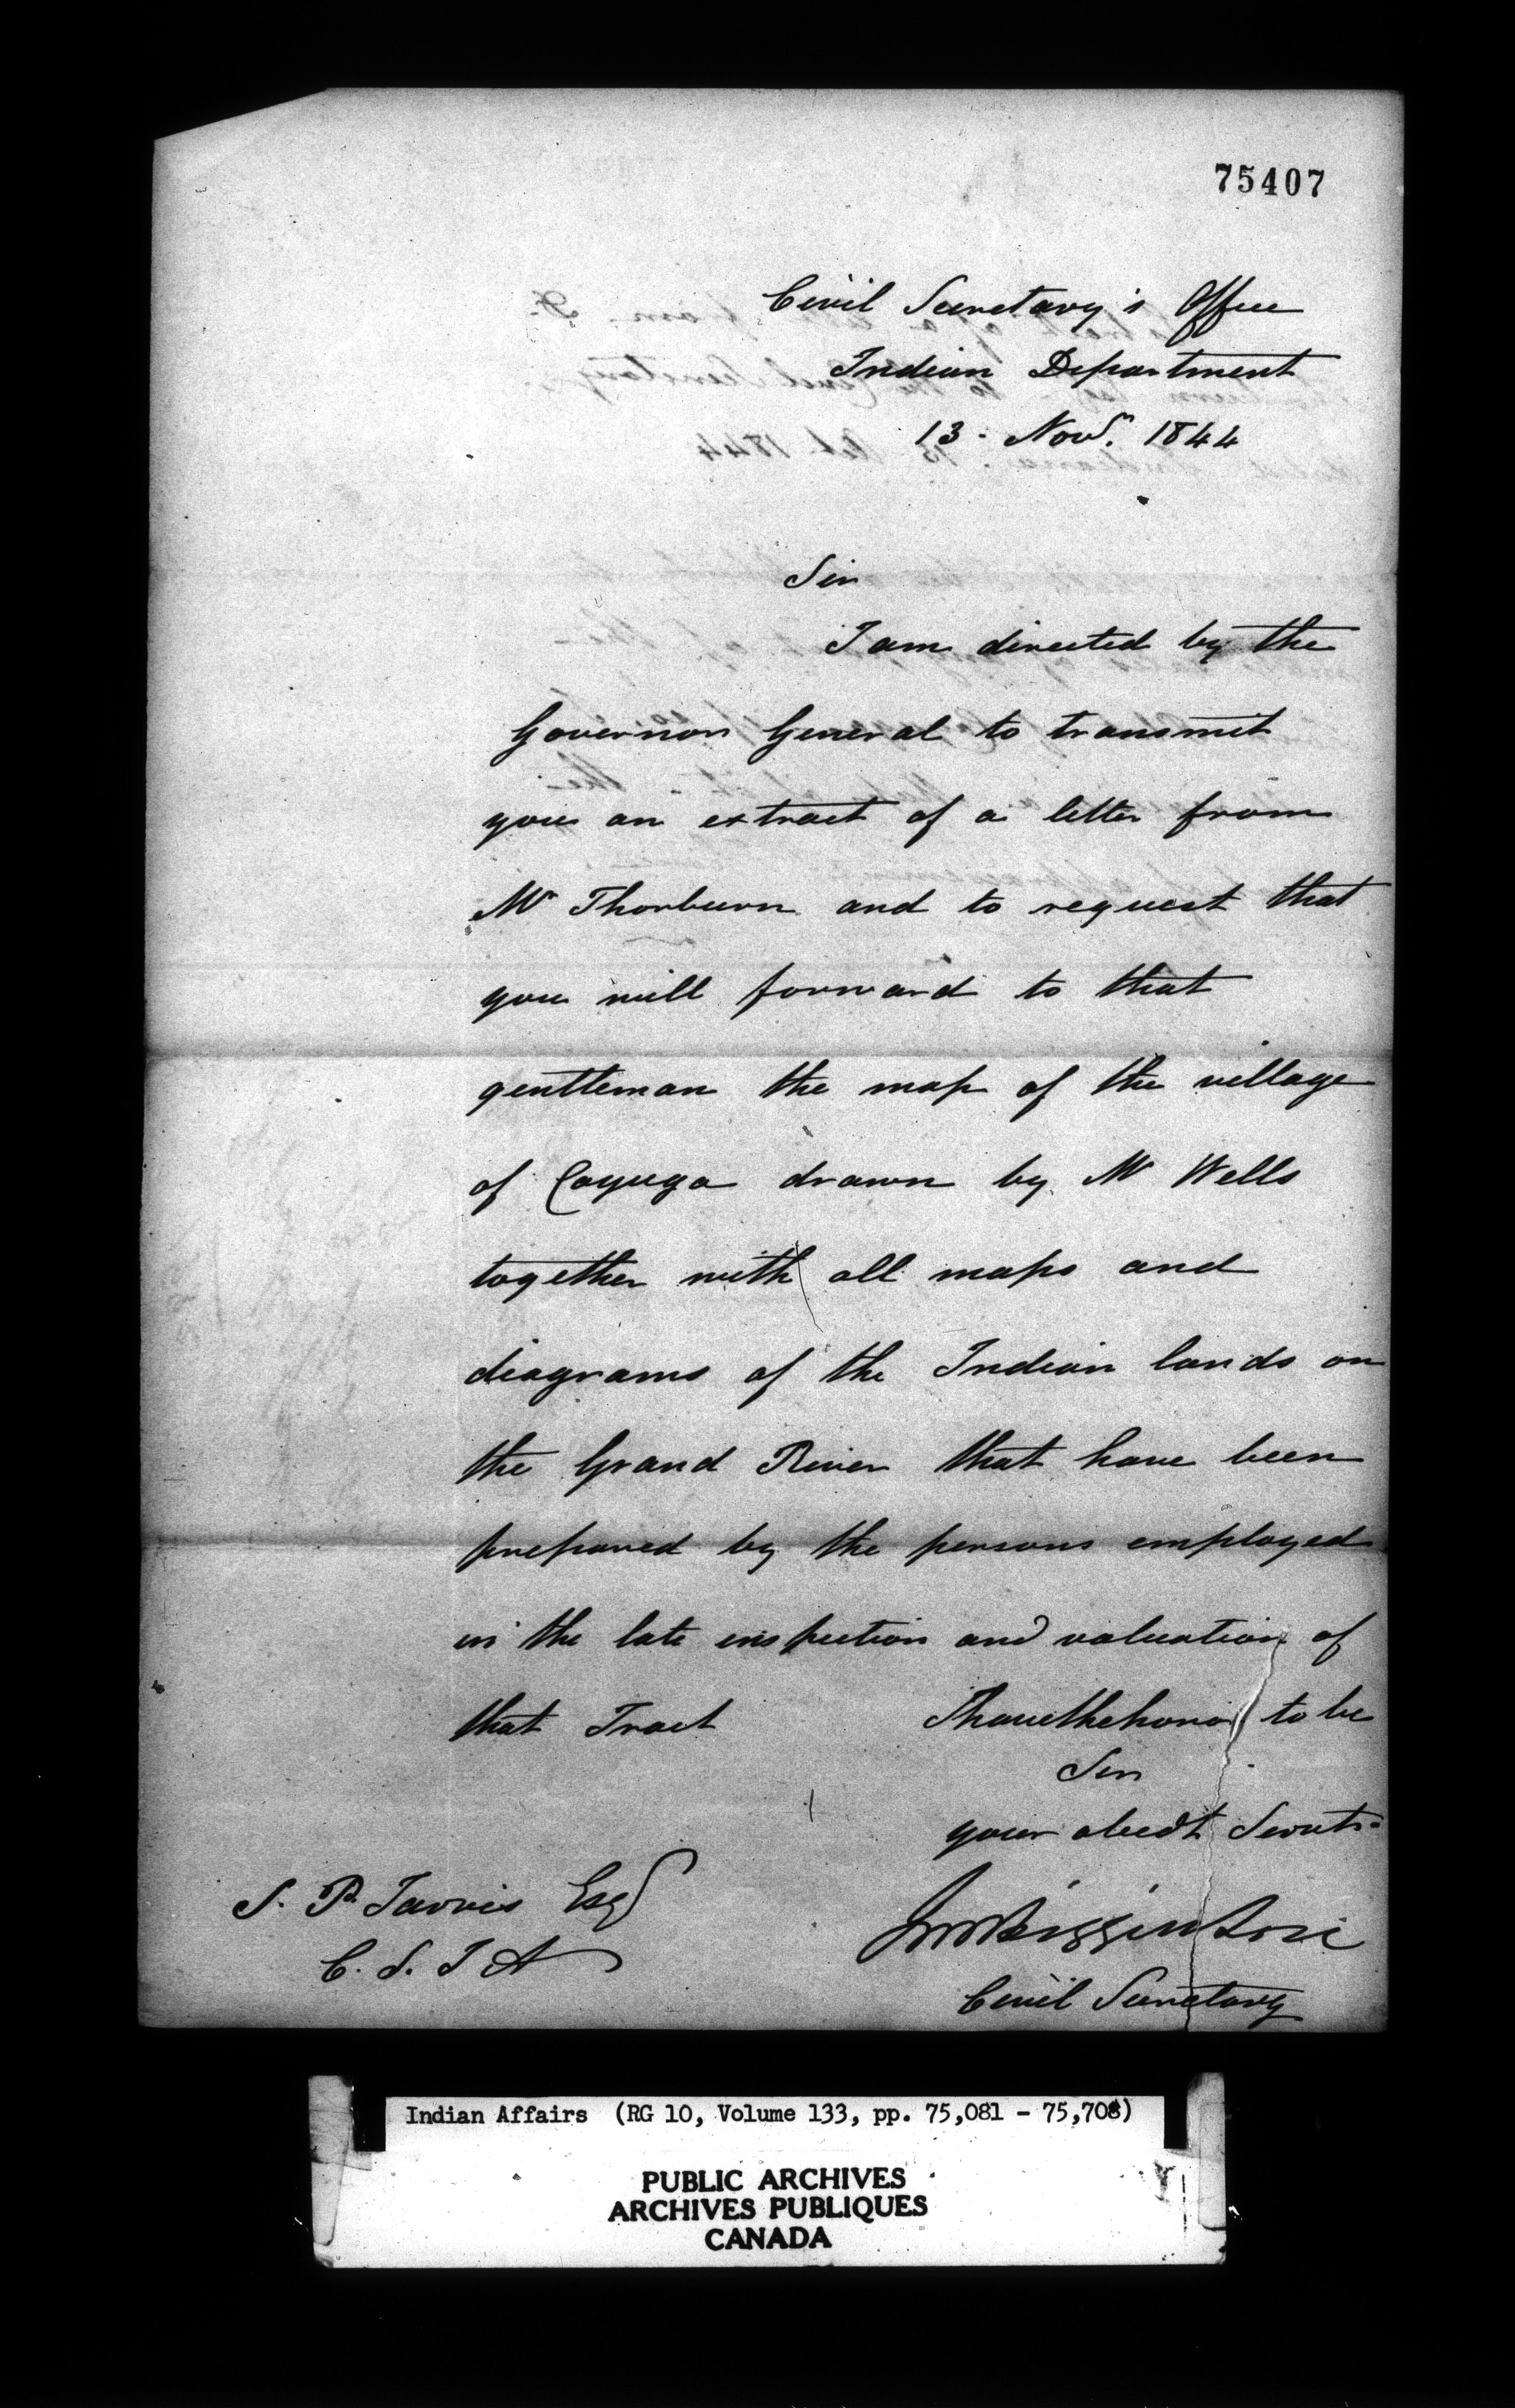 75407
Civil Secretary's Office
Indian Department
13 - Novr. 1844
Sir
I am directed by the
Governor General to transmit
you an extract of a letter from
Mr Thorburn and to request that
you will forward to that
gentleman the map of the village
of Cayuga drawn by Mr Wells
together with all maps and
diagrams of the Indian lands on
the Grand River that have been
prepared by the persons employed
in the late inspection and valuation of
that Tract I have the honor to be
Sir
your obedt Servt.
S. P. Jarvis Esqr
C. S. I A
J M Higginson
Civil Secretary
Indian Affairs (RG 10, Volume 133, pp. 75,081 - 75,708)
PUBLIC ARCHIVES
ARCHIVES PUBLIQUES
CANADA